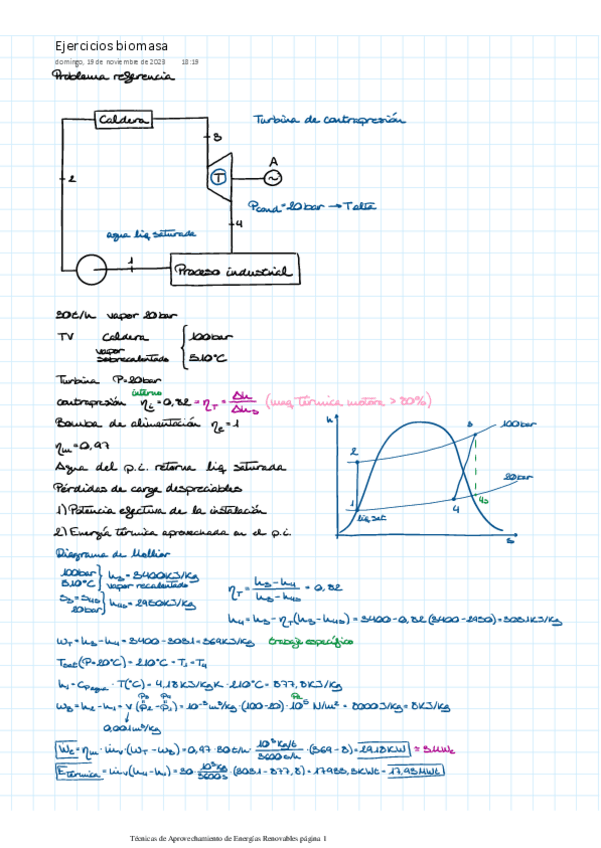 Ejercicios biomasa
domingo, 19 de noviembre de 2023 18:19
Problema referencia
Caldera
Turbina de contrapresión
3
2
T
A
Pcond = 20bar → T alta
4
agua liq saturada
1
Proceso industrial
30t/h vapor 20bar
TV Caldera { 100bar
vapor sobrecalentado 510°C
Turbina P=20bar
interno
contrapresión ηi = 0,82 = ηT = Δh/Δhs (maq. térmica motora > 80%)
Bomba de alimentación ηe = 1
ηm = 0,97
Agua del p.i. retorna liq saturada
Pérdidas de carga despreciables
1) Potencia efectiva de la instalación
2) Energía térmica aprovechada en el p.i.
h
2
3
100bar
20bar
1
liq sat
4
4s
s
Diagrama de Mollier
100bar 510°C } h3 = 3400KJ/Kg vapor recalentado
S3 = S4s 20bar } h4s = 2950KJ/Kg
ηT = h3-h4 / h3-h4s = 0,82
h4 = h3 - ηT(h3-h4s) = 3400 - 0,82 (3400-2950) = 3031KJ/Kg
WT = h3-h4 = 3400-3031 = 369KJ/Kg trabajo específico
Tsat(P=20°C) = 210°C = T1 = T4
h1 = Cpagua · T(°C) = 4,18KJ/KgK · 210°C = 877,8KJ/Kg
WB = h2-h1 = v(p2-p1) = 10⁻³ m³/Kg · (100-20) · 10⁵ N/m² = 8000J/Kg = 8KJ/Kg
0,001m³/Kg
We = ηm · ṁv (WT - WB) = 0,97 · 30t/h · 10³Kg/t / 3600s/h · (369-8) = 2918KW ≈ 3MWe
Etérmica = ṁv(h4-h1) = 30 · 10³Kg / 3600s · (3031-877,8) = 17933,3KWt = 17,93MWt
Técnicas de Aprovechamiento de Energías Renovables página 1